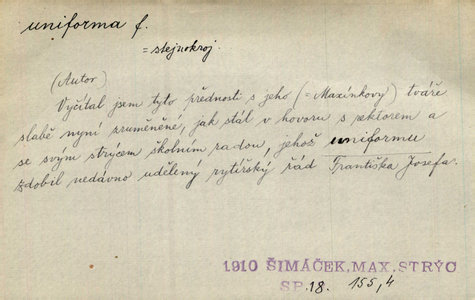 uniforma f.
= stejnokroj.
(Autor)
Vyčítal jsem tyto přednosti s jeho (= Maxínkovy) tváře
slabě nyní zruměněné, jak stál v hovoru s rektorem a
se svým strýcem školním radou, jehož uniformu
zdobil nedávno udělený rytířský řád Františka Josefa.
1910 ŠIMÁČEK, MAX. STRÝC
SP. 18. 155, 4